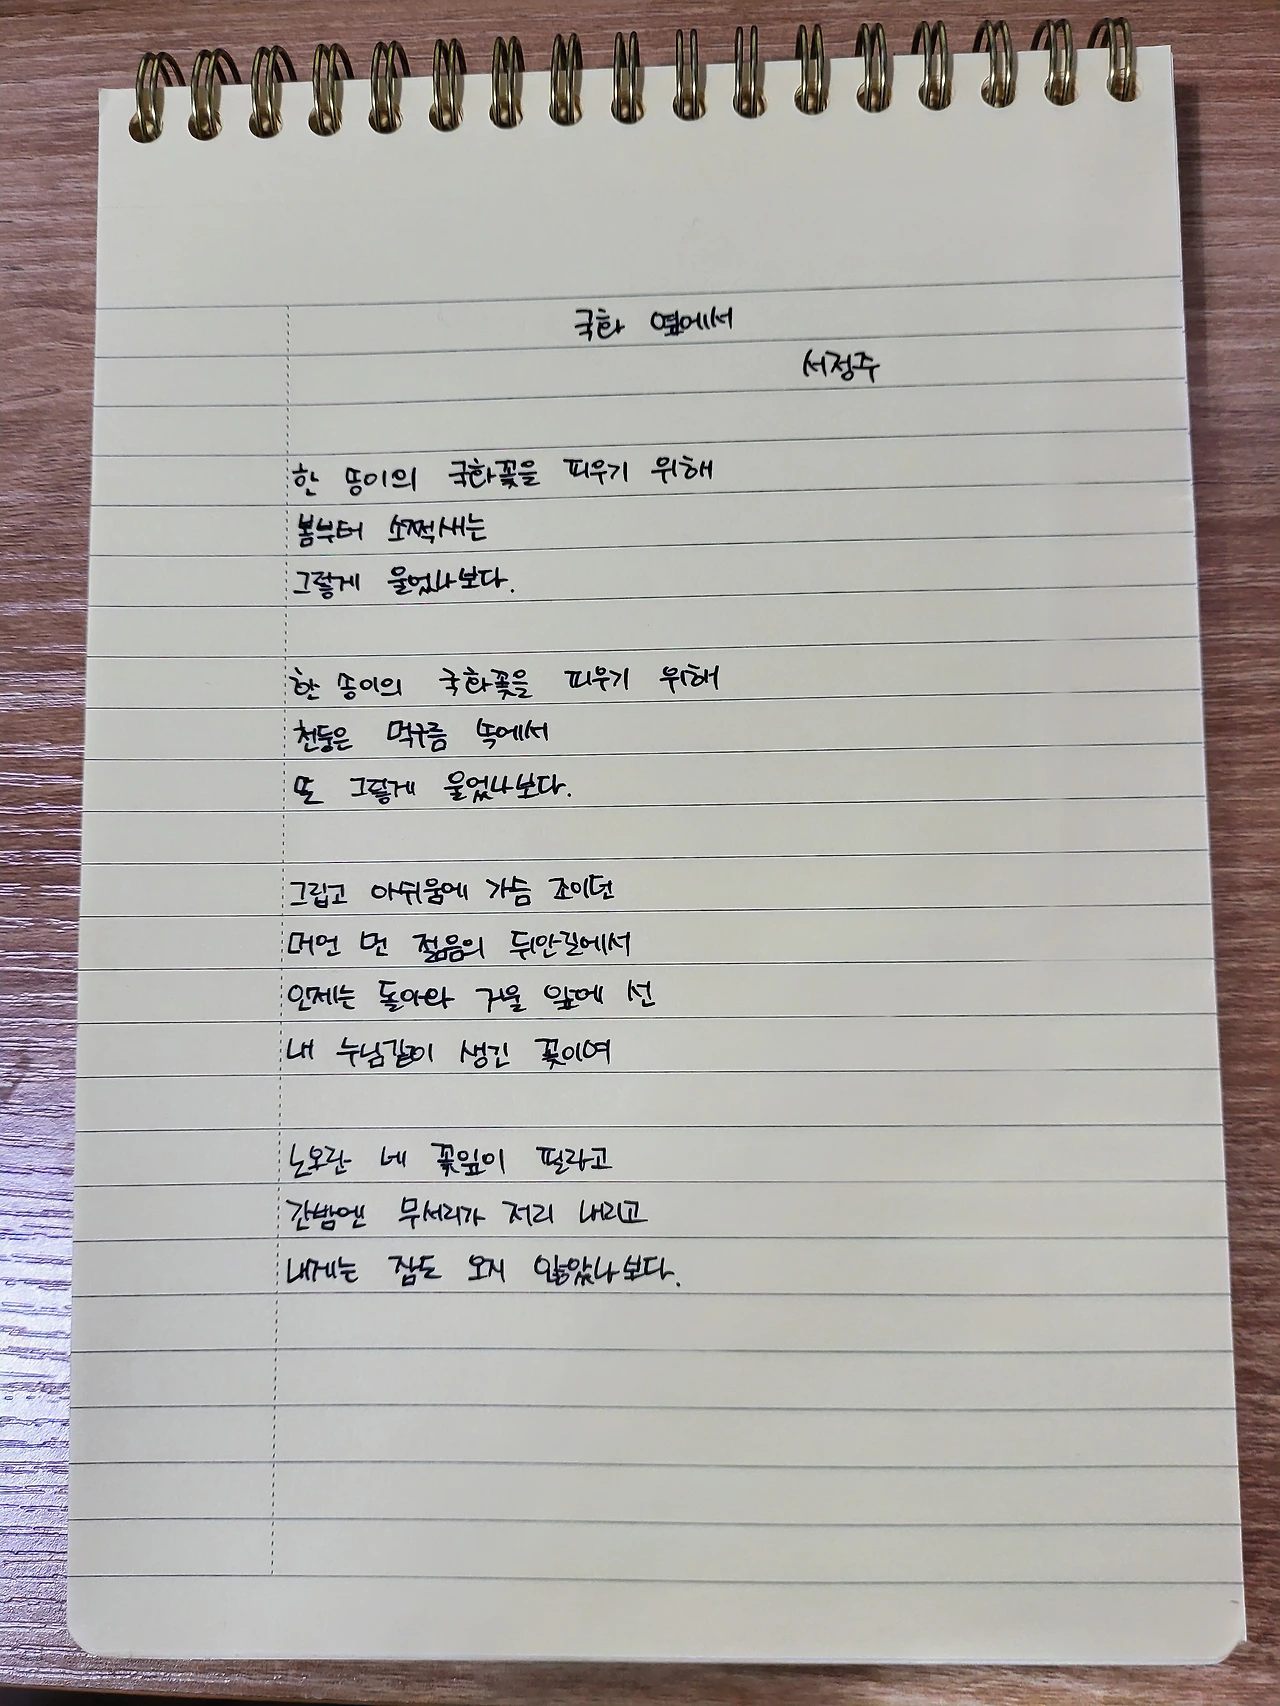 국화 옆에서
서정주
한 송이의 국화꽃을 피우기 위해
봄부터 소쩍새는
그렇게 울었나보다.
한 송이의 국화꽃을 피우기 위해
천둥은 먹구름 속에서
또 그렇게 울었나보다.
그립고 아쉬움에 가슴 조이던
머언 먼 젊음의 뒤안길에서
인제는 돌아와 거울 앞에 선
내 누님같이 생긴 꽃이여
노오란 네 꽃잎이 필라고
간밤엔 무서리가 저리 내리고
내게는 잠도 오지 않았나보다.